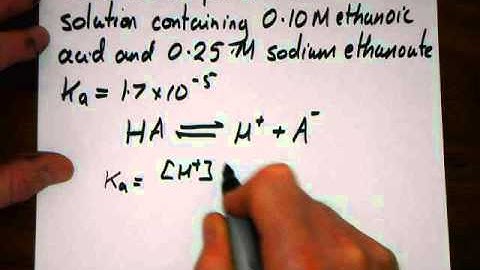 solution containing 0.10M ethanoic
acid and 0.25M sodium ethanoate
Ka = 1.7 x 10⁻⁵
HA ⇌ H⁺ + A⁻
Ka = [H⁺]